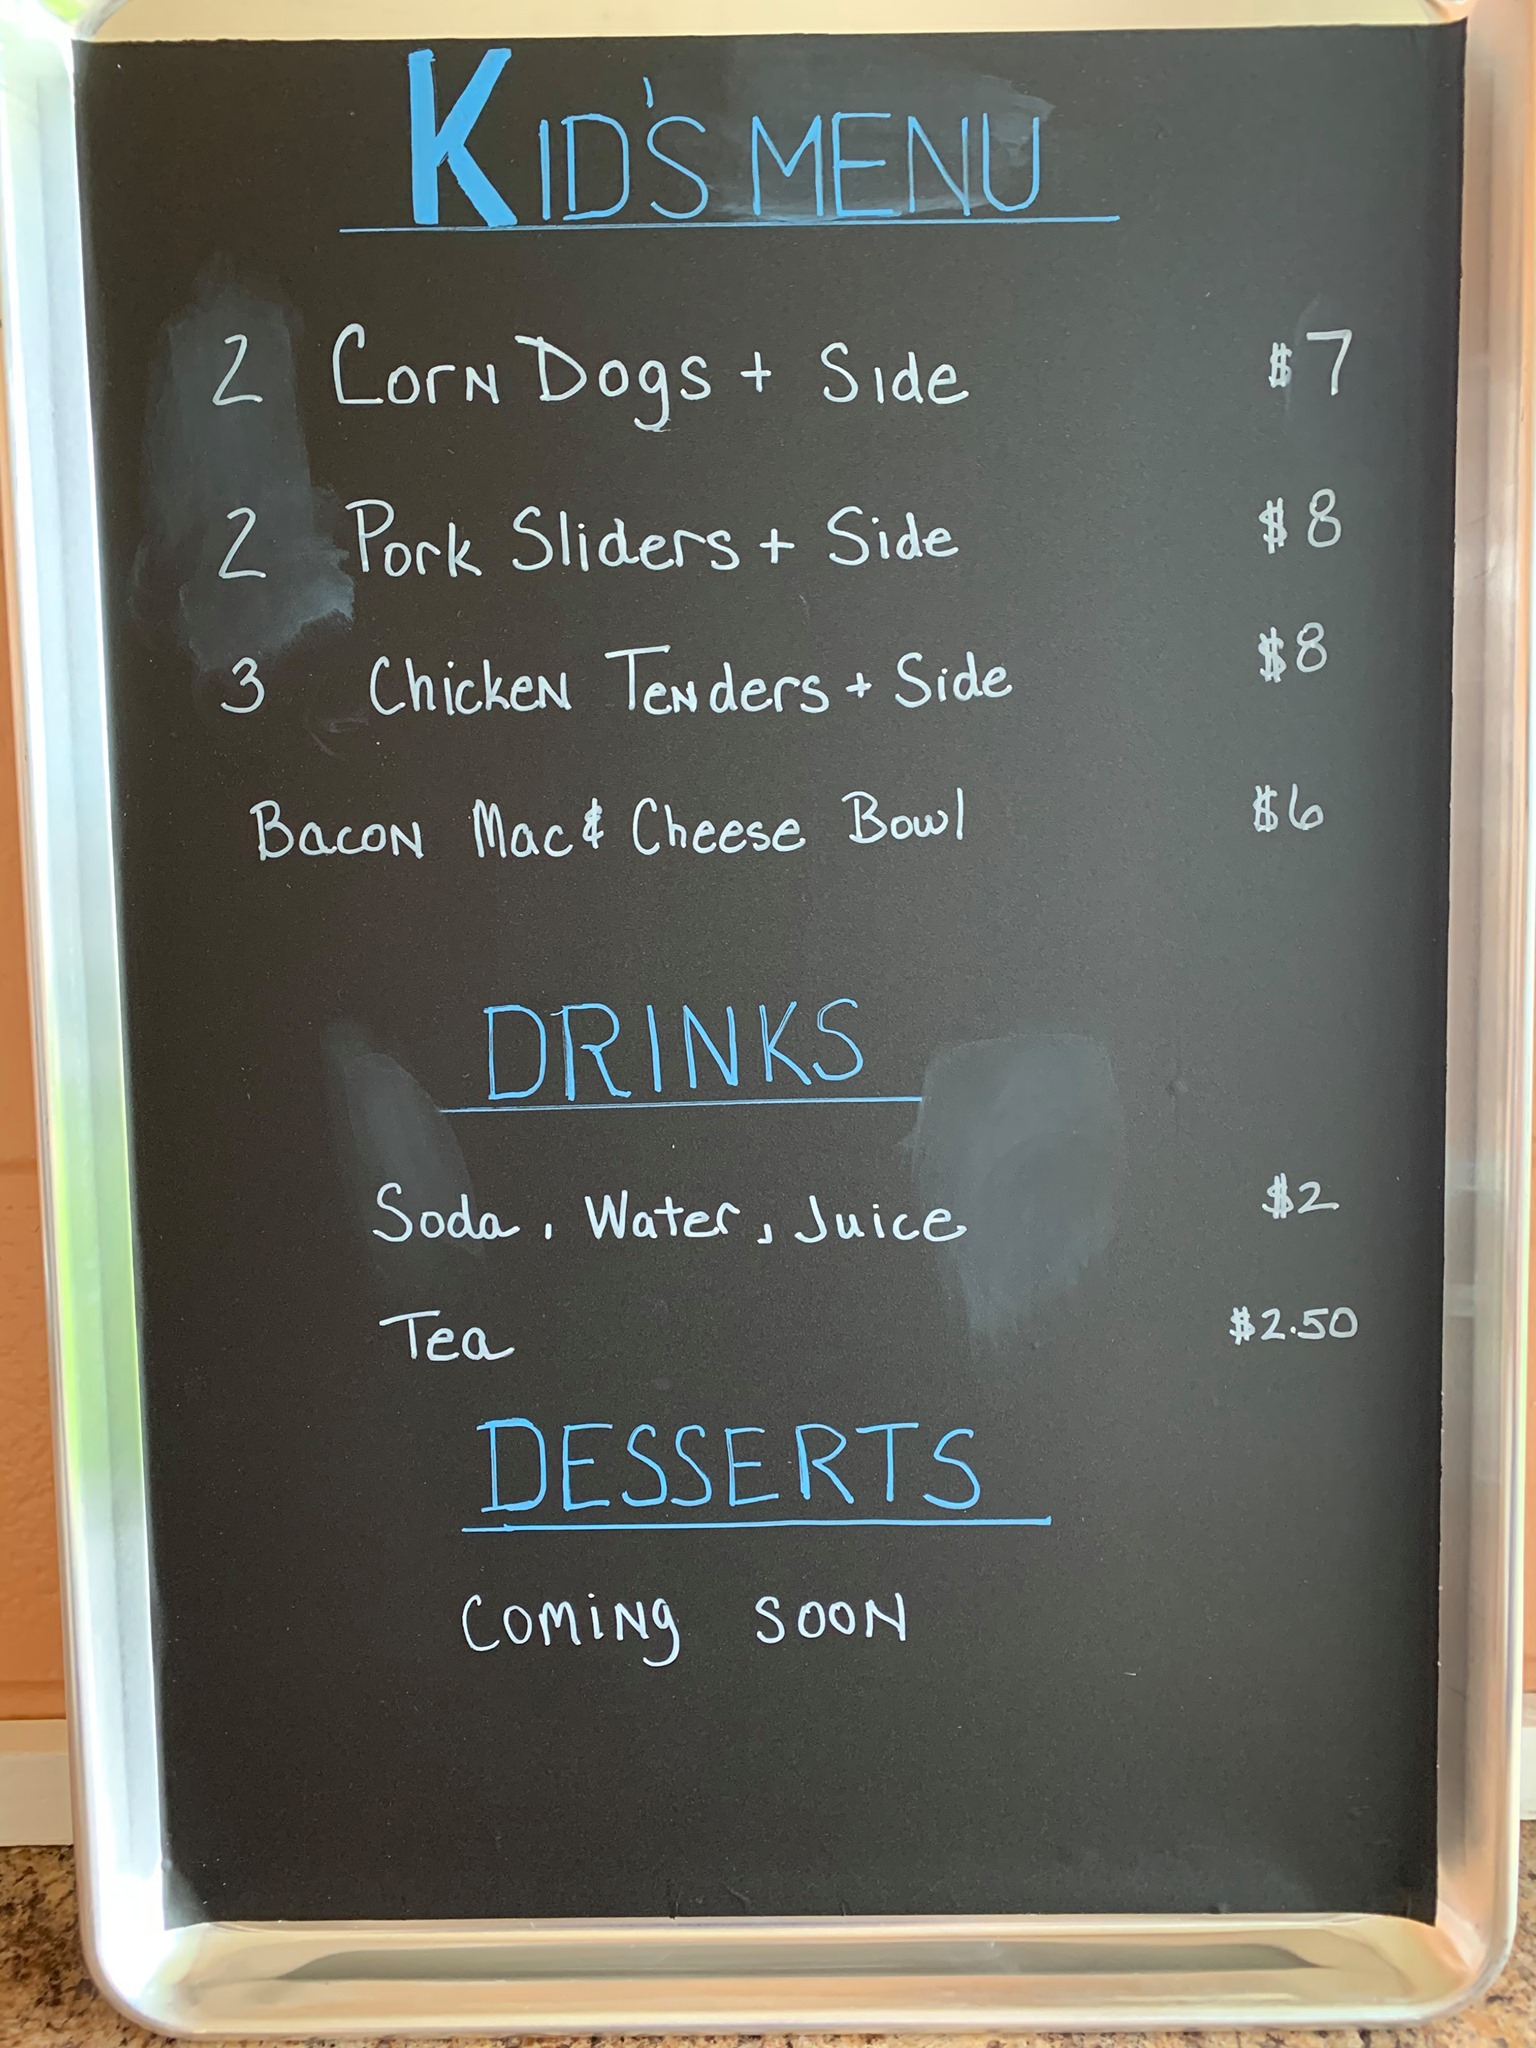 KID'S MENU
2 Corn Dogs + Side $7
2 Pork Sliders + Side $8
3 Chicken Tenders + Side $8
Bacon Mac & Cheese Bowl $6
DRINKS
Soda, Water, Juice $2
Tea $2.50
DESSERTS
COMING SOON